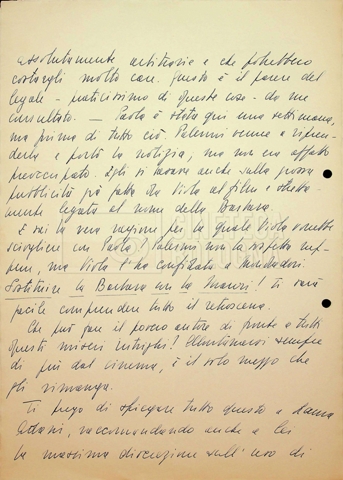 Assolutamente arbitrarie e che potrebbero
costargli molto care. Questo è il parere del
legale - praticissimo di queste cose - da me
consultato. — Paola è stata qui una settimana,
ma prima di tutto ciò. Palermi venne a ripren-
derla e portò la notizia, ma non era affatto
preoccupato. Egli si
pubblicità già fatta da Viola al film e stretta-
mente legata al nome della Barbara.
E sai la vera ragione per la quale Viola
sciogliere con Paola, Palermi non la
ma Viola l'ha confidato a Mondadori.
Sostituire la Barbara con la ! Ti sarà
facile comprendere tutto il retroscena.
Che può fare il povero autore di fronte a tutti
questi miseri intrighi! Allontanarsi sempre
di più dal cinema, è il solo mezzo che
gli rimanga.
Ti prego di spiegare tutto questo a
raccomandando anche a lei
la massima discrezione sull'uso di